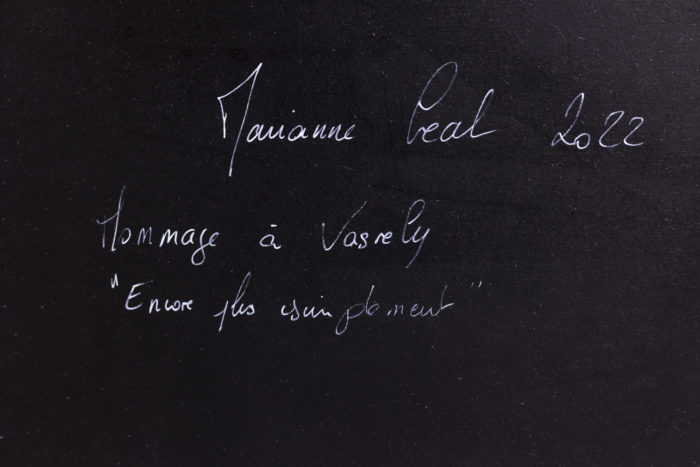 Marianne Leal 2022
Hommage à Vasrely
"Encore plus simplement"